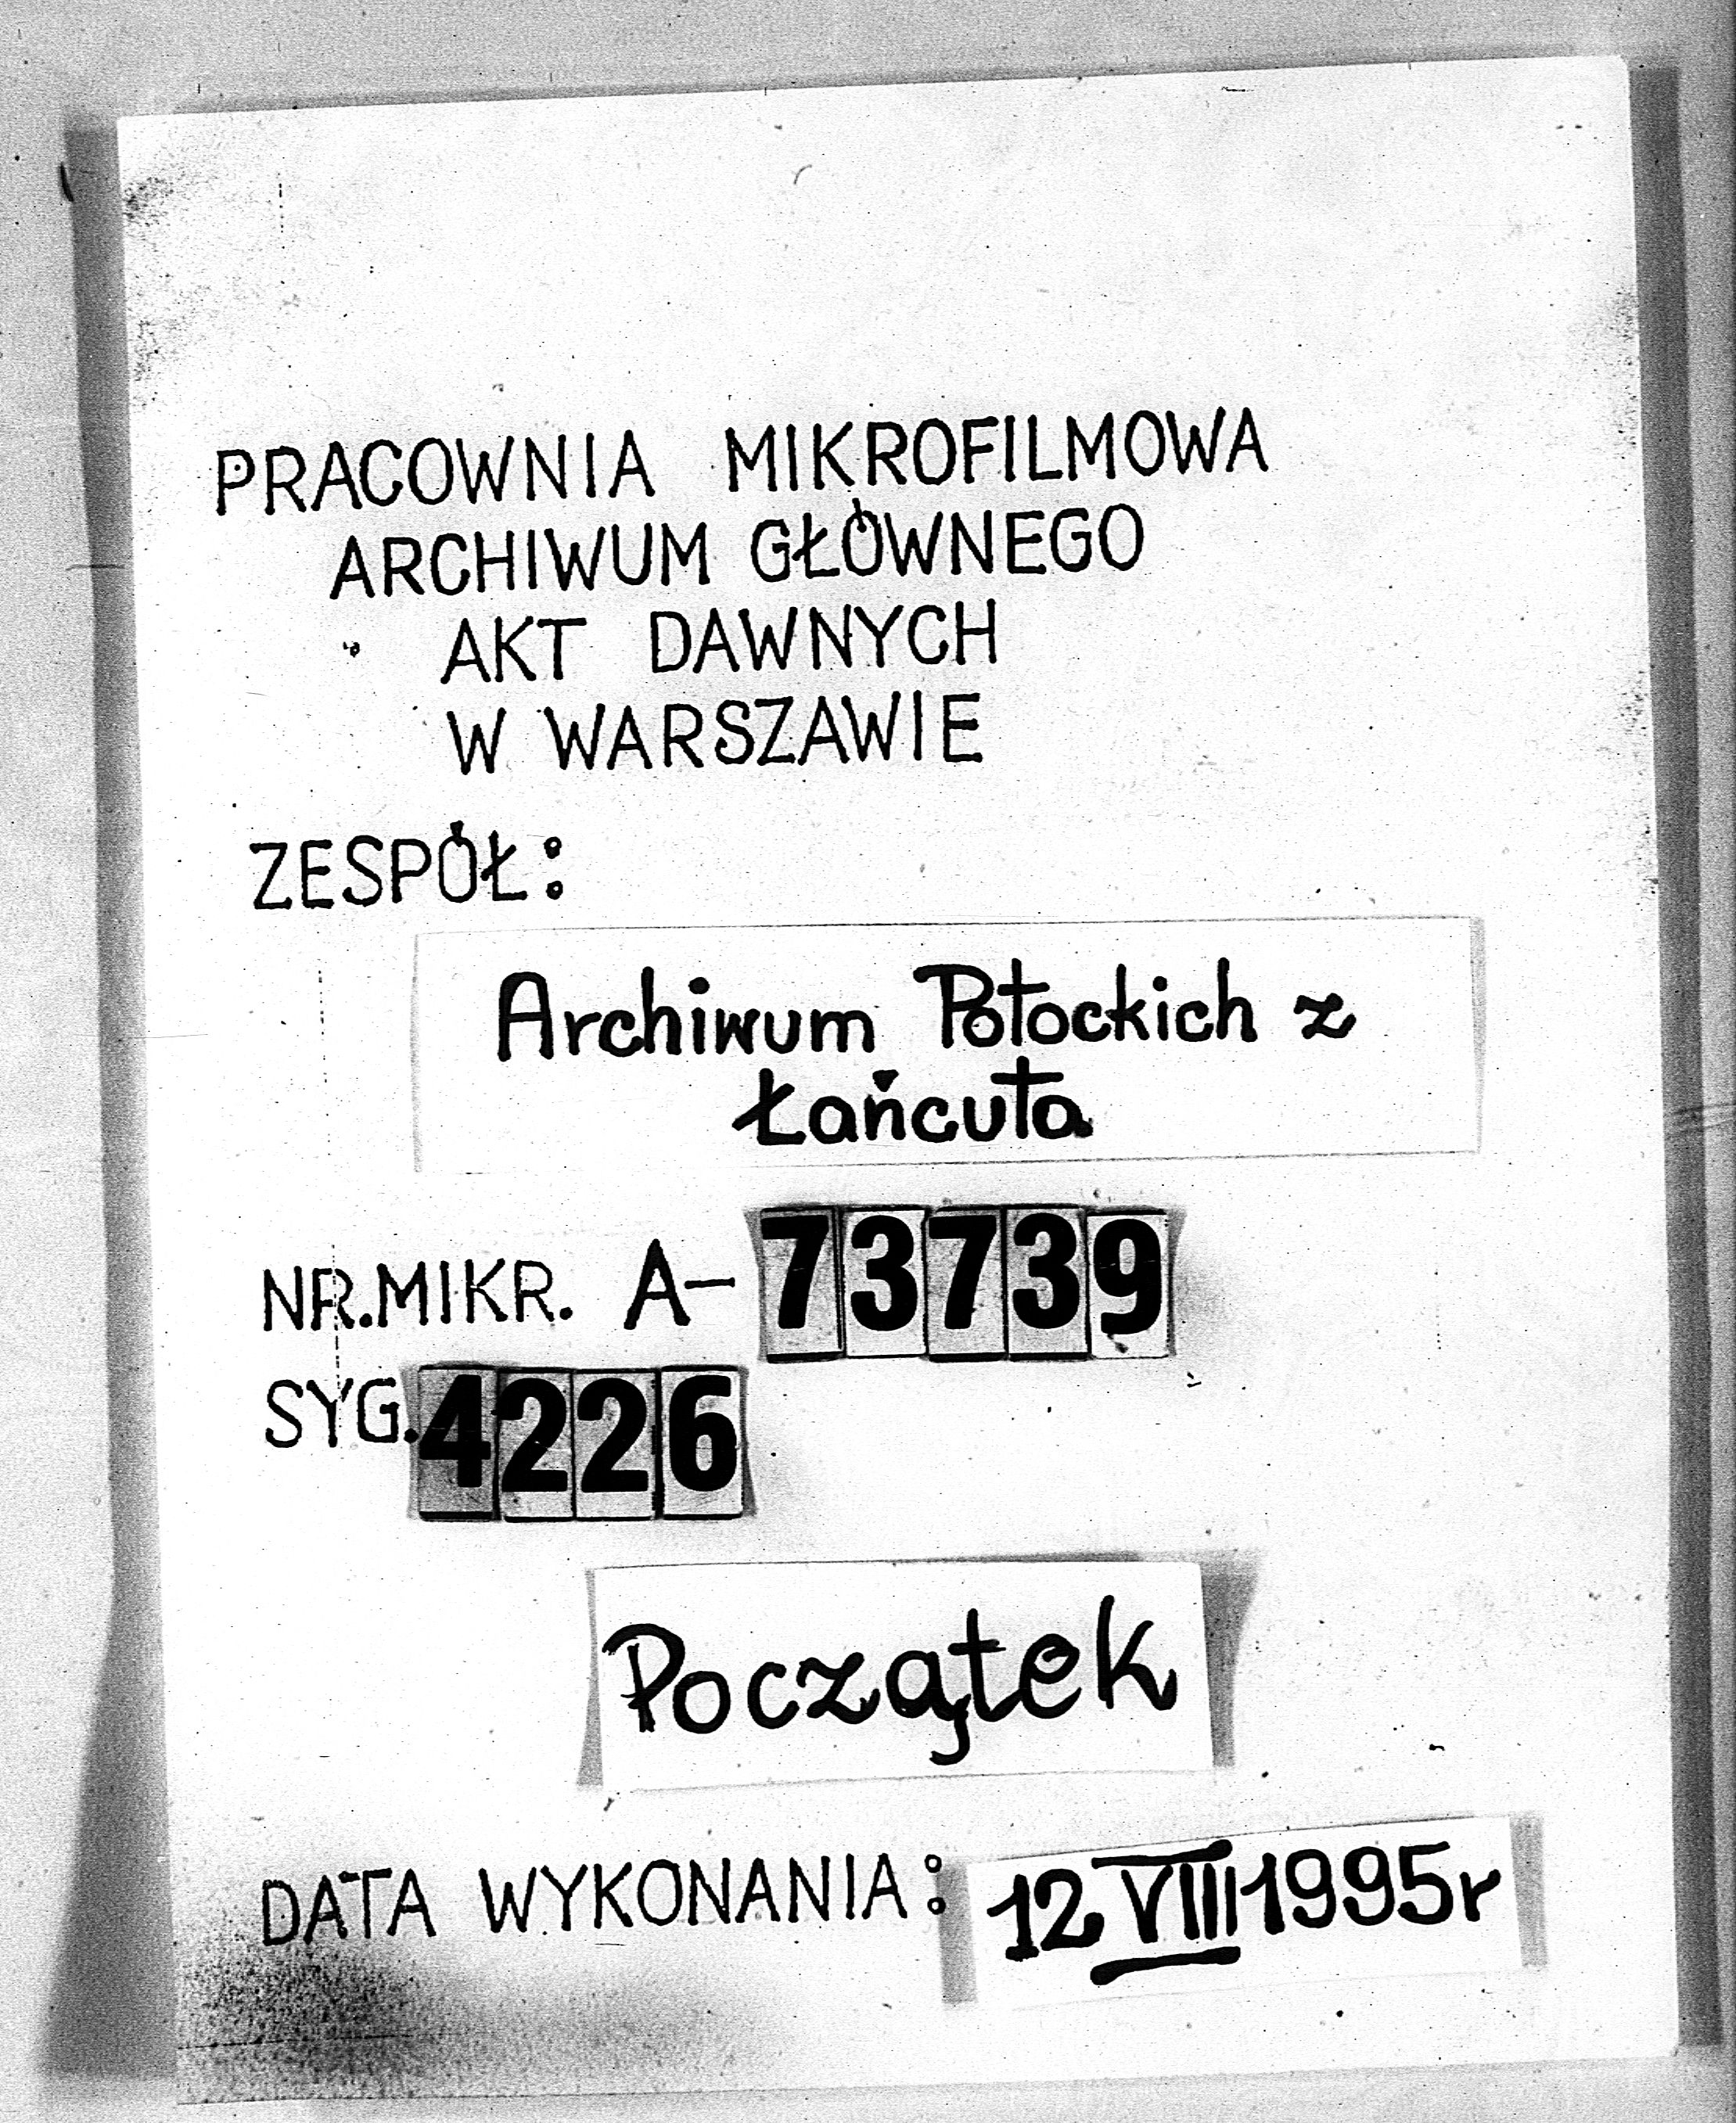 PRACOWNIA MIKROFILMOWA
ARCHIWUM GŁÓWNEGO
AKT DAWNYCH
W WARSZAWIE
ZESPÓŁ:
Archiwum Potockich z
Łańcuta
NR.MIKR. A-73739
SYG.4226
Początek
DATA WYKONANIA: 12 VIII 1995r